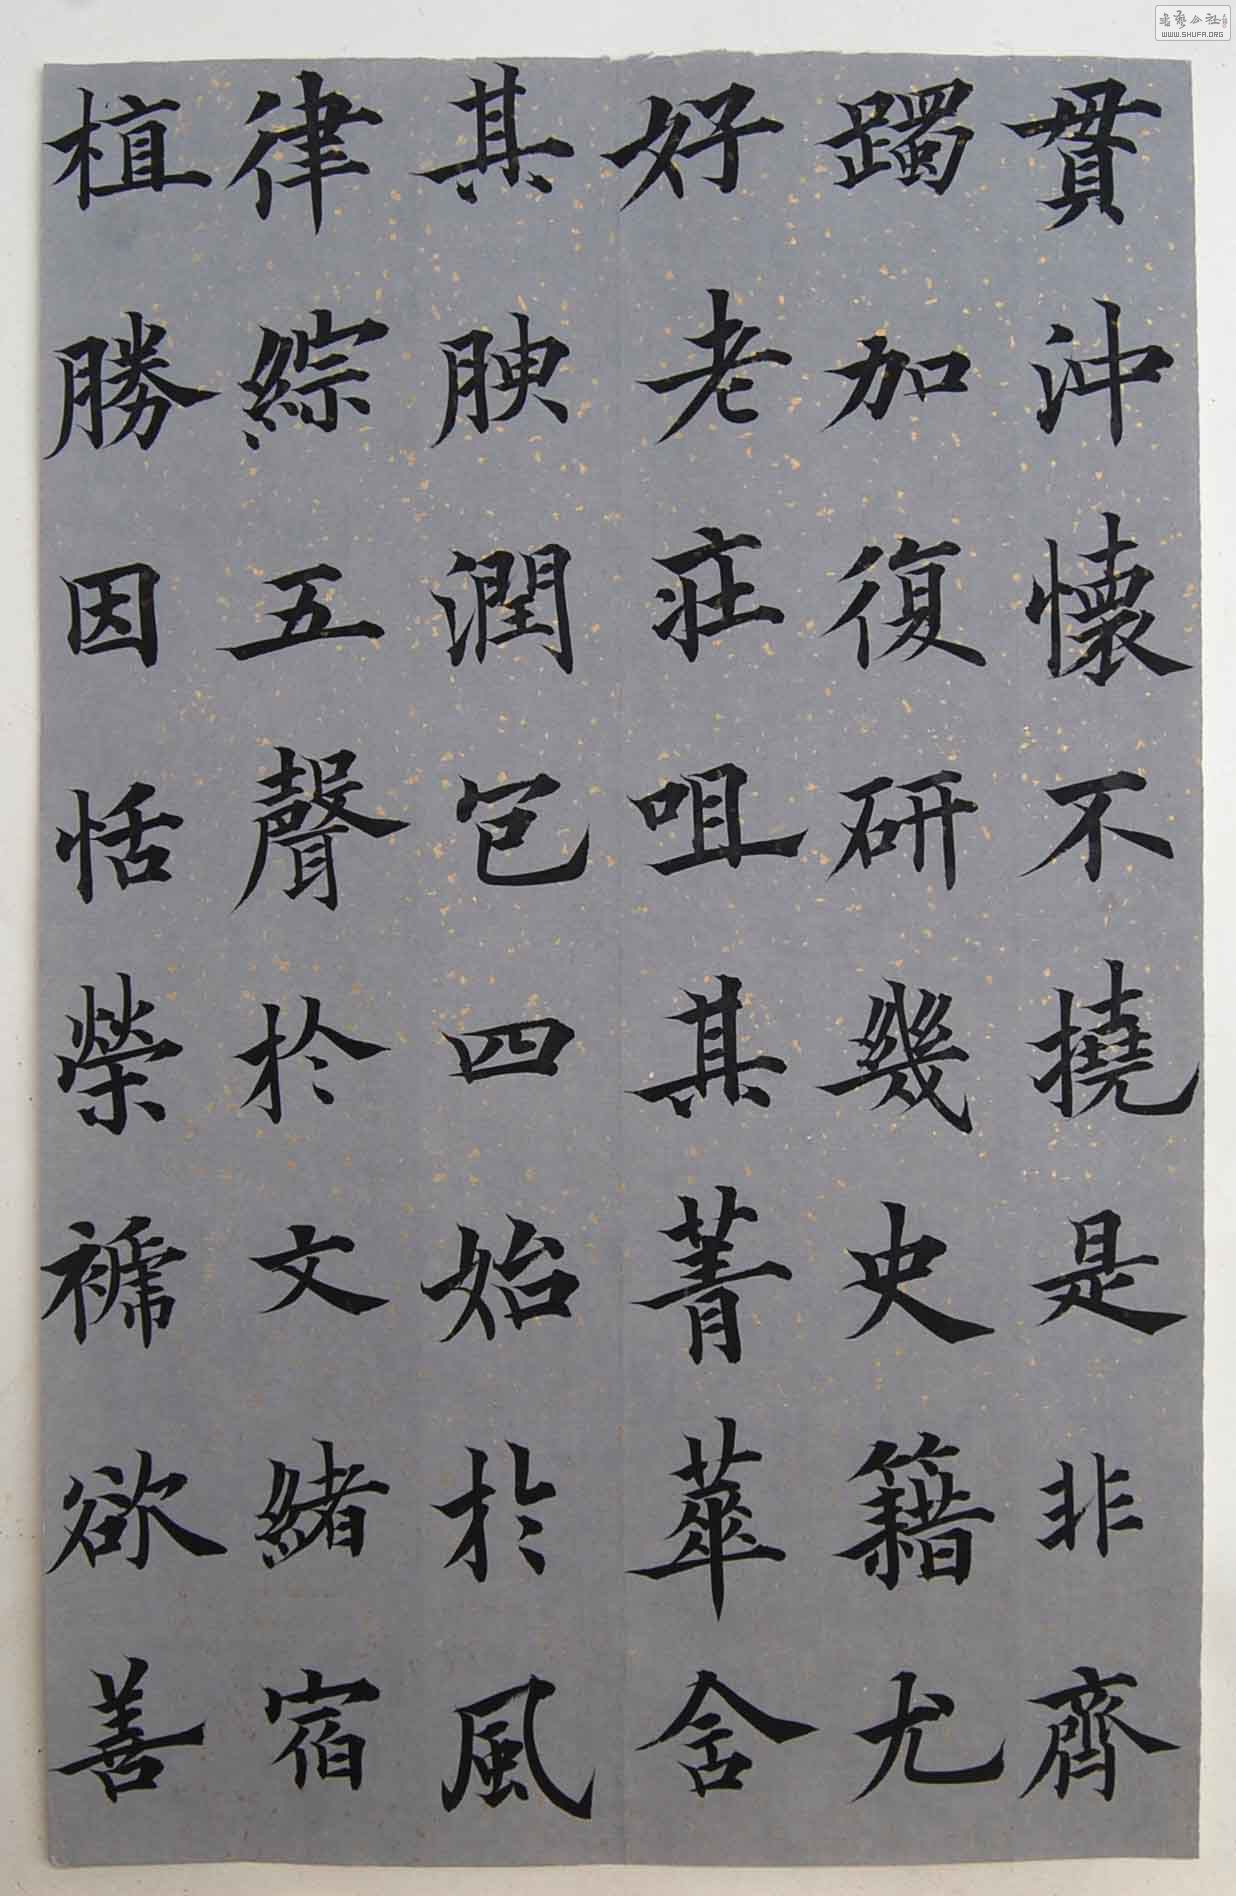 貫沖懷不撓是非齊
躅加復研幾史籍尤
好老莊咀其菁華舍
其腴潤包四始於風
律綜五聲於文緒宿
植勝因恬榮褫欲善
書藝公社
WWW.SHUFA.ORG